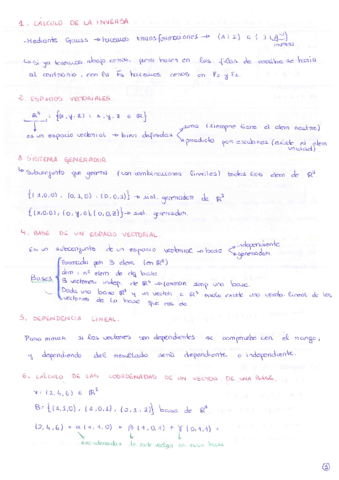 1. CÁLCULO DE LA INVERSA
-Mediante Gauss → hacemos transformaciones → (A|I) ∈ (I|A⁻¹)
inversa
↳ si ya tenemos abajo ceros, pero en las filas de arriba se haría
al contrario, con la F₃ hacemos ceros en F₂ y F₁.
2. ESPACIOS VECTORIALES
ℝ³ : {(x,y,z) : x,y,z ∈ ℝ}
suma (siempre tiene el elem neutro)
es un espacio vectorial → bien definidas
producto por escalares (existe el elem
unidad)
3. SISTEMA GENERADOR
↳ Subconjunto que genera (con combinaciones lineales) todos los elem de ℝ³
{(1,0,0), (0,1,0), (0,0,1)} → sist. generador de ℝ³
{(x,0,0), (0,y,0), (0,0,z)} → sist generador.
4. BASE DE UN ESPACIO VECTORIAL.
Es un subconjunto de un espacio vectorial → base
independiente
generador
Bases
formada por 3 elem (en ℝ³)
dim : nº elem de dq base
3 vectores indep. de ℝ³ → forman siemp una base.
Dada una base ℝ³ y un vector ∈ ℝ³ existe una lineal de los
vectores de la base que nos da
5. DEPENDENCIA LINEAL.
Para mirar si los vectores son dependientes se comprueba con el rango,
y dependiendo del resultado será dependiente o independiente.
6. CÁLCULO DE LAS COORDENADAS DE UN VECTOR DE UNA BASE.
v = (2,4,6) ∈ ℝ³
B = {(1,1,0), (1,0,1), (0,1,1)} base de ℝ³.
(2,4,6) = α(1,1,0) + β(1,0,1) + γ(0,1,1) =
coordenadas de este vector en esta base
③